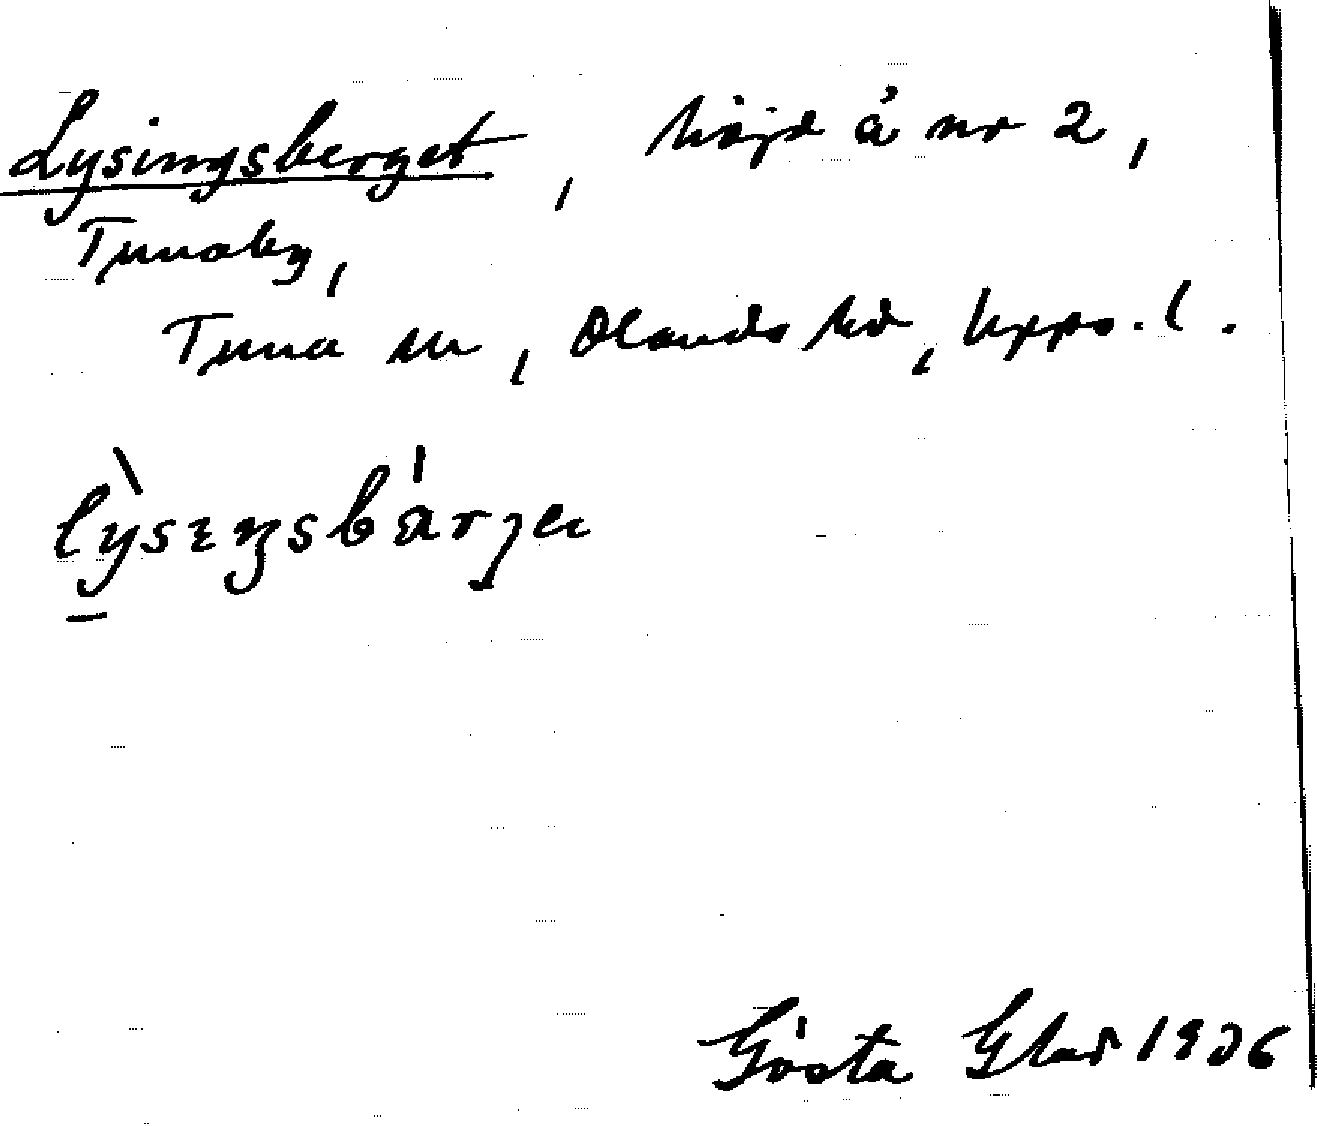 Lysingsberget, höjd å nr 2,
Tunaby,
Tuna sn, Olands hd, Upps. l.
Gösta 1936